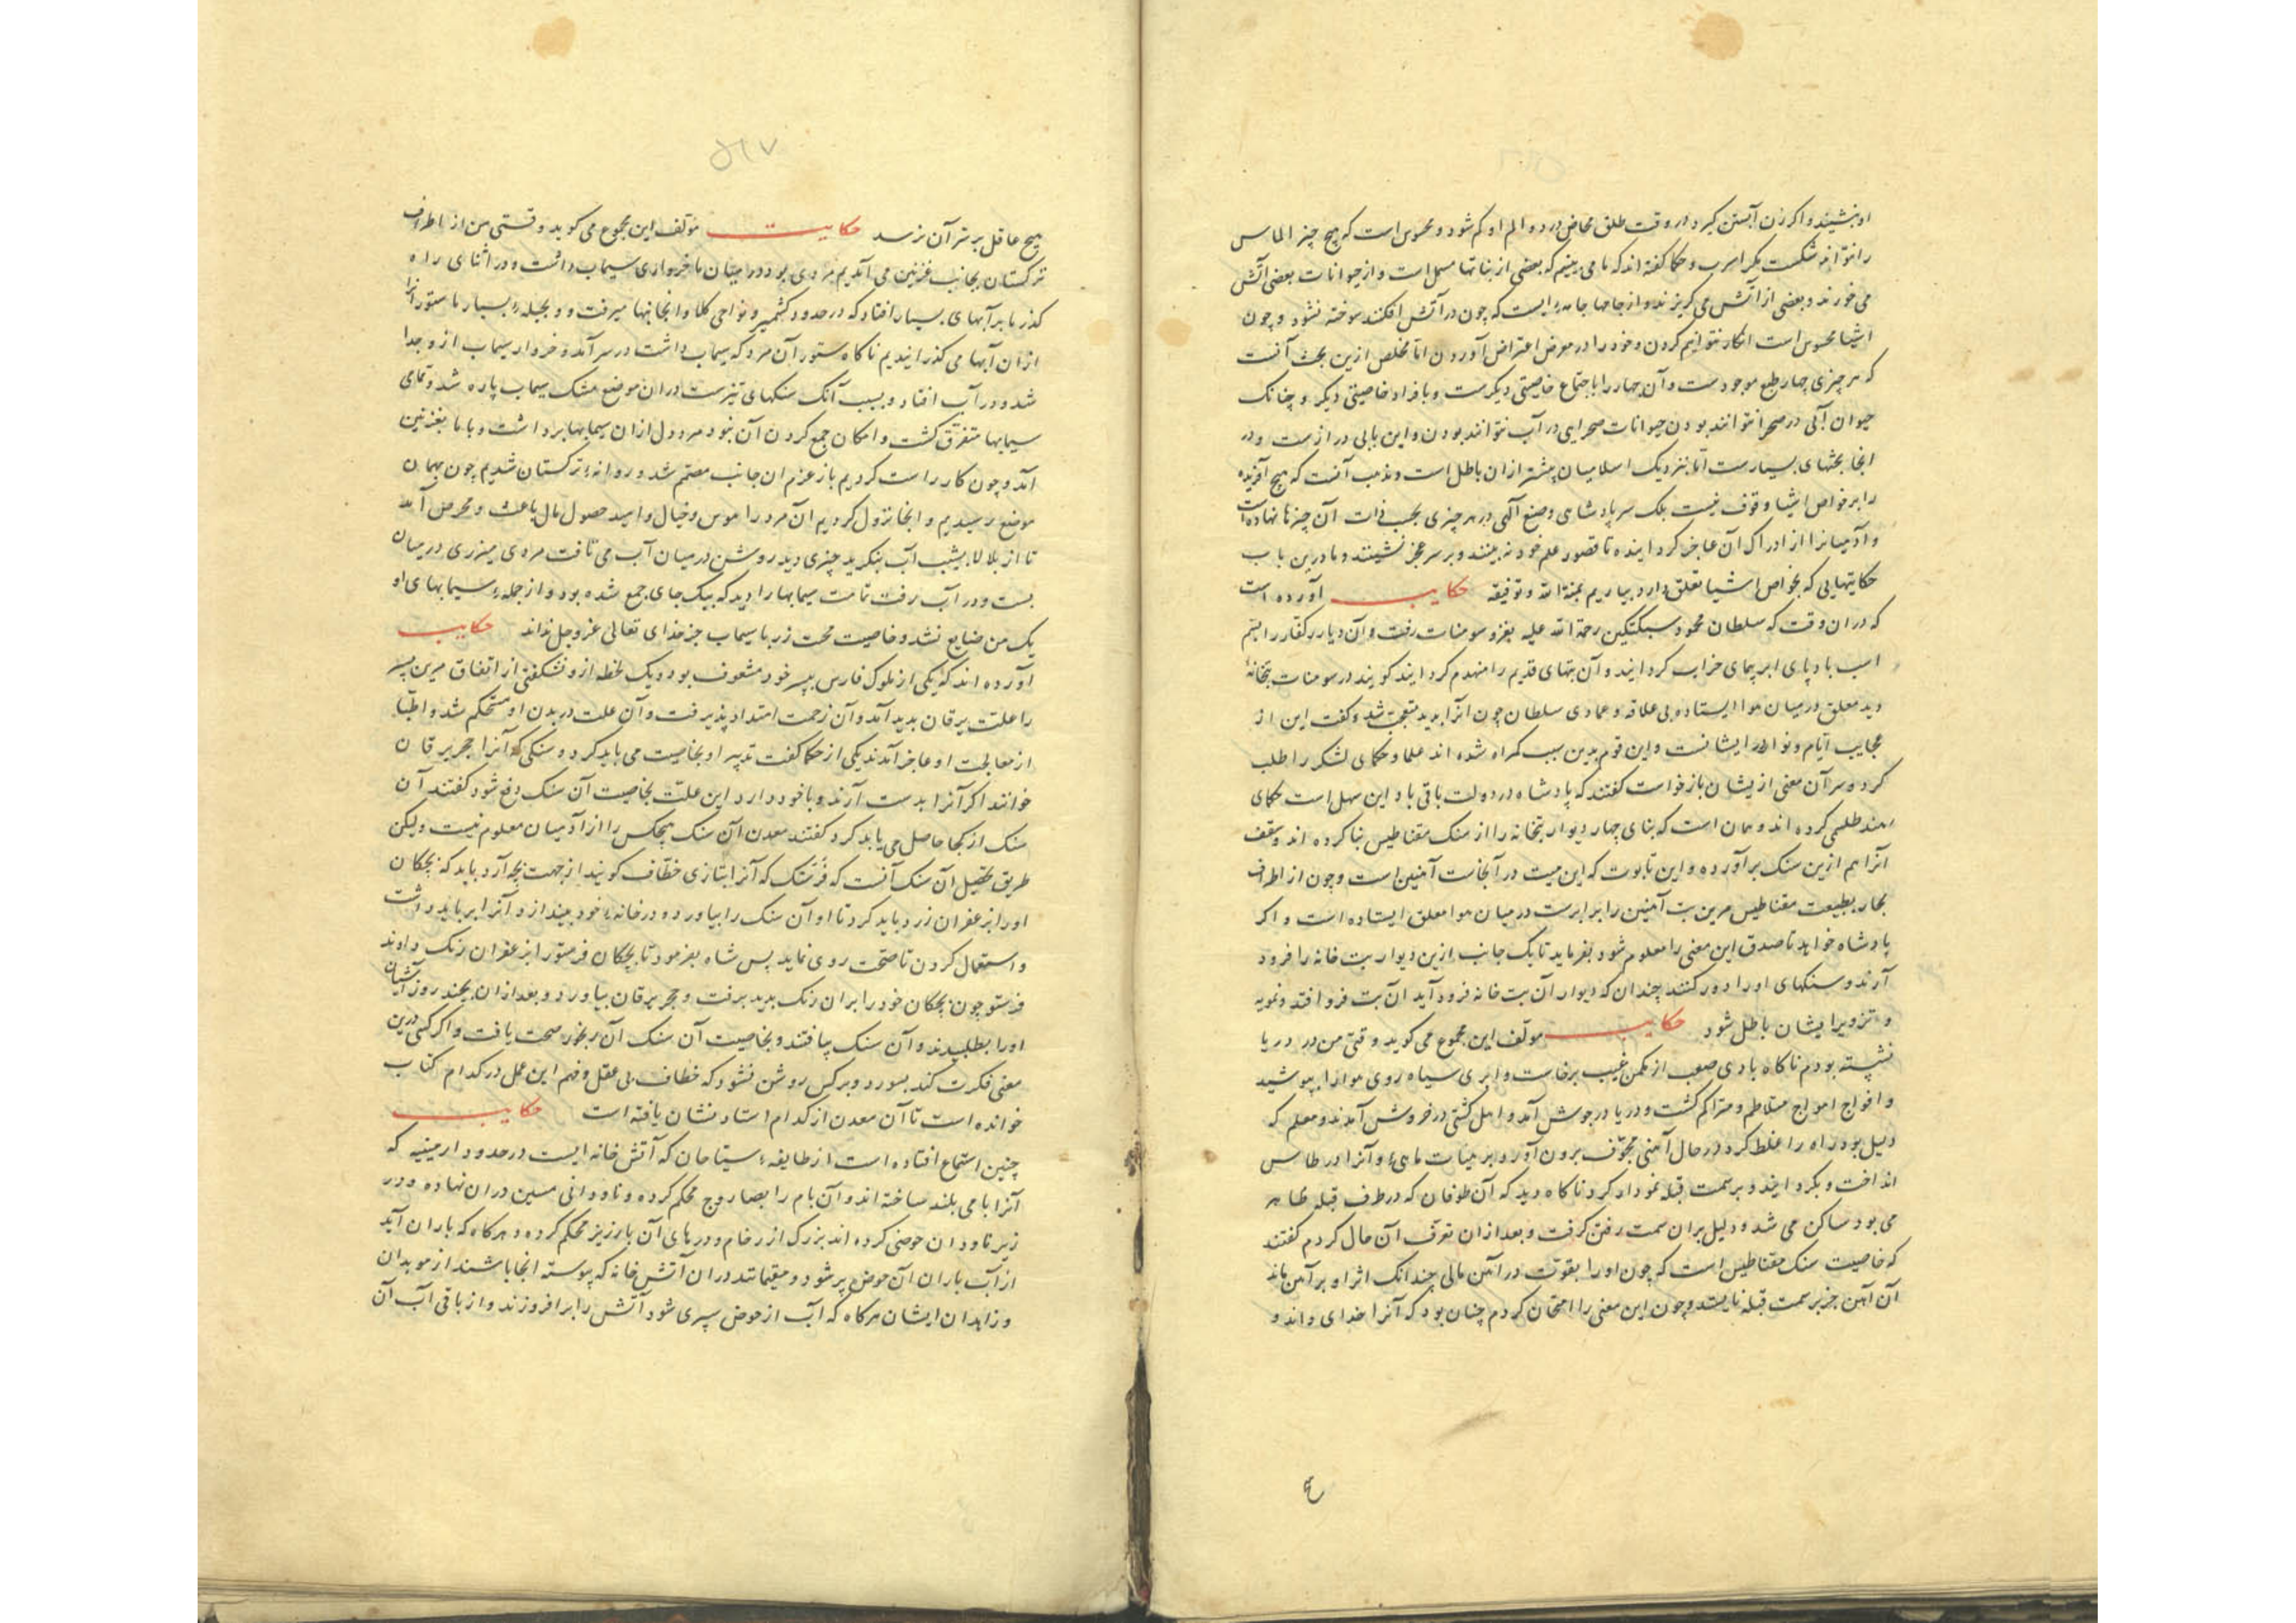 او بنشیند و اگر زن آبستن گیرد در وقت طلق مخاض درد و الم او کم شود و محسوس است که هیچ چیز الماس
را نتواند شکست مگر اسرب و حکما گفته اند که ما می بینیم که بعضی از نباتها مسهل است و از حیوانات بعضی آتش
می خورند و بعضی از آتش می گریزند و از جامها جامهٔ ایست که چون در آتش افکنند سوخته نشود و چون
اشیا محسوس است انکار نتوانیم کردن و خود را در معرض اعتراض آوردن اما مخلص ازین بحث آنست
که هر چیزی چهار طبع موجودست و آن چهار را باجتماع خاصیتی دیگرست و بافراد خاصیتی دیگر و چنانک
حیوان آبی در صحرا نتوانند بودن حیوانات صحرایی در آب نتوانند بودن و این بابی درازست و در
اینجا بحثهای بسیارست اما بنزدیک اسلامیان بیشتر ازان باطل است و مذهب آنست که هیچ آفریده
را بر خواص اشیا وقوف نیست بلک سر پادشاهی و صنع آلهی در هر چیزی بحسب ذات آن چیز نهاده است
و آدمیانرا از ادراک آن عاجز گردانیده تا قصور علم خود بینند و بر سر عجز نشینند و ما درین باب
حکایتهایی که بخواص اشیا تعلق دارد بیاریم بمنة الله و توفیقه حکایت آورده است
که دران وقت که سلطان محمود سبکتکین رحمة الله علیه بغزو سومنات رفت و آن دیار کفار را بسم
اسب بادپای ابرپیمای خراب گردانید و آن بتهای قدیم را منهدم گردانید گویند در سومنات بتخانهٔ
دید معلق در میان هوا ایستاده بی علاقه و عمادی سلطان چون انرا بدید متعجب شد و گفت این از
عجایب ایام و نوادر ایشانست و این قوم بدین سبب گمراه شده اند علما و حکمای لشکر را طلب
کرد و سر آن معنی ازیشان بازخواست گفتند که پادشاه در دولت باقی باد این سهل است حکمای
هند طلسمی کرده اند و همان است که بنای چهار دیوار بتخانه را از سنک مقناطیس بنا کرده اند و سقف
آنرا هم ازین سنک برآورده و این تابوت که این میت در آنجاست آهنین است و چون از اطراف
چهار بطبیعت مقناطیس مرین بت آهنین را برابرست در میان هوا معلق ایستاده است و اگر
پادشاه خواهد تا صدق این معنی را معلوم شود بفرماید تا یک جانب ازین دیوار بت خانه را فرود
آرند و سنکهای او را دور کنند چندان که دیوار آن بت خانه فرود آید آن بت فرو افتد و تمویه
و تزویر ایشان باطل شود حکایت مولف این مجموع می گوید وقتی من در دریا
نشسته بودم ناگاه بادی صعب از مکمن غیب برخاست و ابری سیاه روی هوا را بپوشید
و افواج امواج متلاطم و متراکم گشت و دریا در جوش آمد و اهل کشتی در خروش آمدند و معلم که
دلیل بود راه را غلط کرد در حال آهنی مجوف برون آورد بر هیات ماهیٔ و آنرا در طاس
انداخت و بگردانید و بر سمت قبله نمودار کرد ناگاه دید که آن طوفان که در طرف قبله ظاهر
می بود ساکن می شد و دلیل بران سمت رفتن گرفت و بعد ازان تعرف آن حال کردم گفتند
که خاصیت سنک مقناطیس است که چون او را بقوت در آهن مالی چندانک اثر او بر آهن ماند
آن آهن جز بر سمت قبله نایستد و چون این معنی را امتحان کردم چنان بود که آنرا خدای داند و
۵۱۷
هیچ عاقل بر سر آن نرسد حکایت مولف این مجموع می گوید وقتی من از اطراف
ترکستان بجانب غزنین می آمدیم مردی بود در میان ما خرواری سیماب داشت و در اثنای راه
گذر ما بر آبهای بسیار افتاد که در حدود کشمیر و نواحی میرفت و بحیلهٔ بسیار ما ستور
ازان آبها می گذرانیدیم ناگاه ستور آن مرد که سیماب داشت در سر آمد و خروار سیماب ازو جدا
شد و در آب افتاد و بسبب آنک سنکهای تیزست دران موضع مشک سیماب پاره شد و تمامی
سیمابها متفرق گشت و امکان جمع کردن آن نبود مرد دل ازان سیمابها برداشت و با ما بغزنین
آمد و چون کار راست کردیم باز عزم ان جانب مصمم شد و روانهٔ ترکستان شدیم چون بهمان
موضع رسیدیم و انجا نزول کردیم آن مرد را هوس و خیال و امید حصول مال باعث و محرض آمد
تا از بالا بشیب آب بنگرید چیزی دید روشن در میان آب می تافت مردی میزری در میان
بست و در آب رفت تمامت سیمابها را دید که بیک جای جمع شده بود و از جملهٔ سیمابهای او
یک من ضایع نشد و خاصیت محبت زر با سیماب جز خدای تعالی عز و جل نداند حکایت
آورده اند که یکی از ملوک فارس بپسر خود مشعوف بود و یک لحظه ازو نشکفتی از اتفاق مرین پسر
را علت یرقان پدید آمد و آن زحمت امتداد پذیرفت و آن علت در بدن او مستحکم شد و اطبا
از معالجت او عاجز آمدند یکی از حکما گفت تدبیر او بخاصیت می باید کرد و سنکی که آنرا حجر یرقان
خوانند اگر آنرا بدست آرند و با خود دارد این علت بخاصیت آن سنک دفع شود گفتند آن
سنک از کجا حاصل می باید کرد گفتند معدن آن سنک هیچکس را از آدمیان معلوم نیست ولیکن
طریق تحصیل آن سنک آنست که فرشتک که آنرا بتازی خطاف گویند از جهت بچه آرد باید که بچکان
او را بزعفران زرد باید کرد تا او آن سنک را بیاورد و در خانهٔ خود بیندازد و آنرا برباید داشت
و استعمال کردن تا صحت روی نماید پس شاه بفرمود تا بچکان فرستو را بزعفران رنک دادند
فرستو چون بچکان خود را بران رنک بدید برفت و حجر یرقان بیاورد و بعد ازان بچند روز آشیان
او را بطلبیدند و آن سنک بیافتند و بخاصیت آن سنک آن رنجور صحت یافت و اگر کسی درین
معنی فکرت کند بسوزد و بر کس روشن نشود که خطاف بی عقل و فهم این عمل در کدام کتاب
خوانده است تا آن معدن از کدام استاد نشان یافته است حکایت
چنین استماع افتاده است از طایفهٔ سیاحان که آتش خانه ایست در حدود ارمینیه که
آنرا بامی بلند ساخته اند و آن بام را بصاروج محکم کرده و ناودانی مسین دران نهاده و در
زیر ناودان حوضی کرده اند بزرک از رخام و درهای آن بارزیز محکم کرده و هرگاه که باران آید
از آب باران آن حوض پر شود و مقیمانند دران آتش خانه که پیوسته انجا باشند از موبدان
و زاهدان ایشان هرگاه که آب از حوض سپری شود آتش را برافروزند و از باقی آب آن